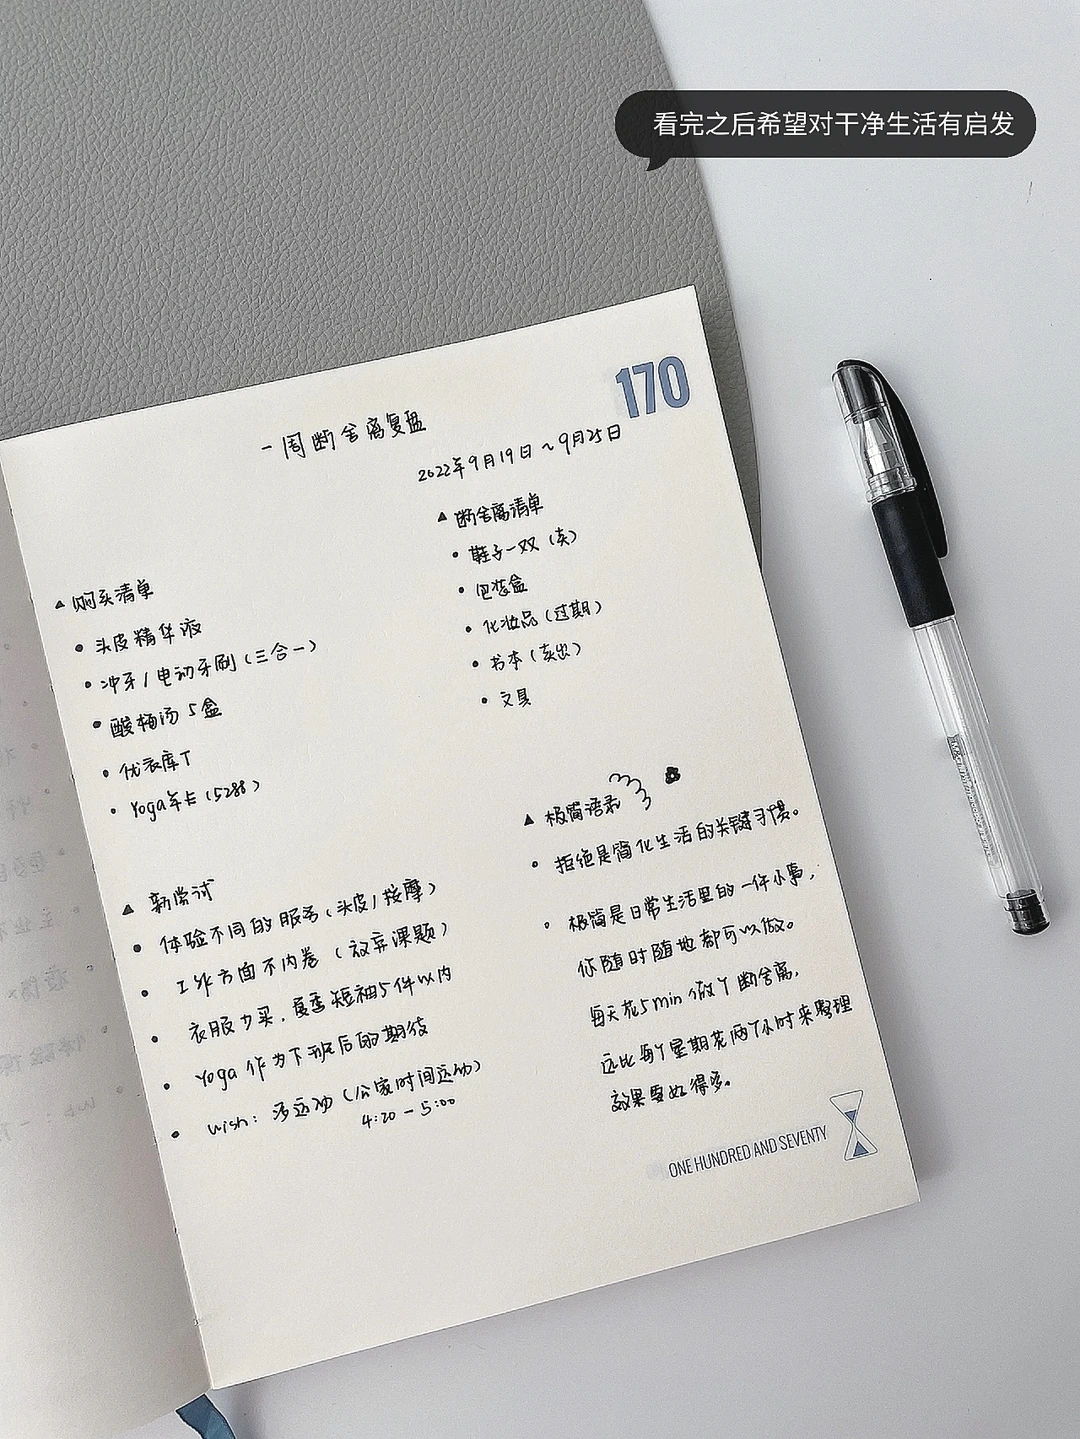 看完之后希望对干净生活有启发
170
一周断舍离复盘
2022年9月19日~9月25日
▲ 购买清单
• 头皮精华液
• 冲牙/电动牙刷(三合一)
• 酸梅汤5盒
• 优衣库T
• Yoga年卡(5288)
▲ 断舍离清单
• 鞋子一双(卖)
• 包装盒
• 化妆品(过期)
• 书本(卖出)
• 文具
▲ 新尝试
• 体验不同的服务(头皮/按摩)
• 工作方面不内卷(放弃课题)
• 衣服少买,夏季短袖5件以内
• Yoga作为下班后的期待
• wish: 多运动(公家时间运动)
4:20-5:00
▲ 极简语录
• 拒绝是简化生活的关键习惯。
• 极简是日常生活里的一件小事,
你随时随地都可以做。
每天花5min做个断舍离,
远比每个星期花两个小时来整理
效果要好得多。
ONE HUNDRED AND SEVENTY